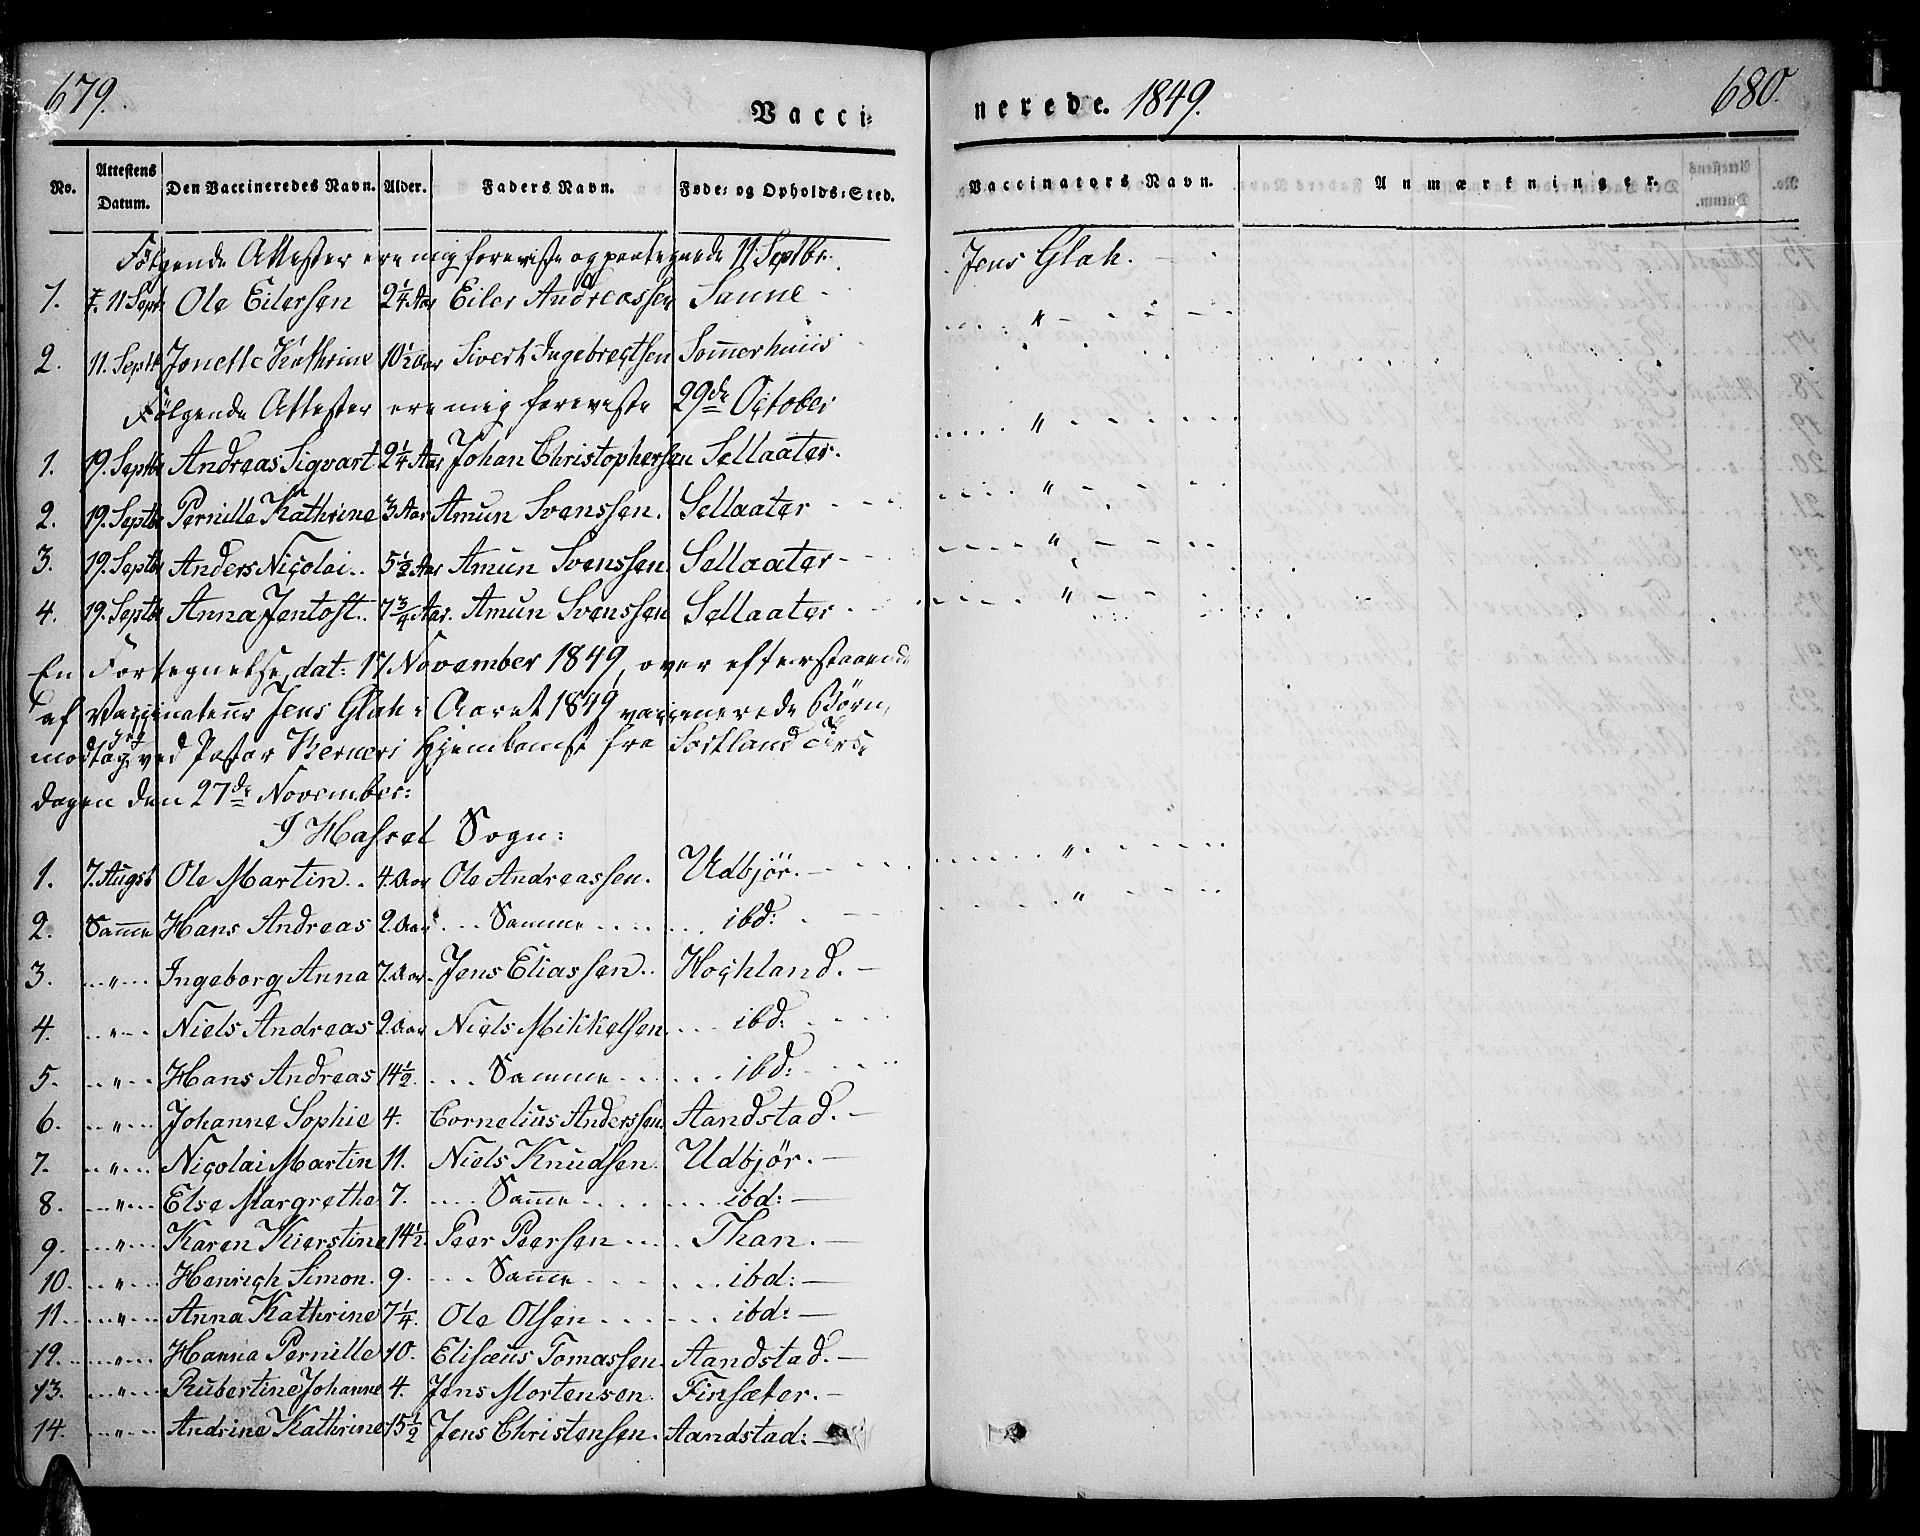 679.
Vacci-
nerede. 1849.
680.
No. Attestens Datum. Den Vaccineredes Navn. Alder. Faders Navn. Føde- og Opholds-Sted. Vaccinators Navn. Anmærkninger.
Følgende Attester ere mig foreviste og paategnede 11 Septbr. Jens Glah.
1. 11 Sept Ole Eilersen 2 1/4 Aar Eiler Andreassen Sanne - "
2. 11. Septb Jonette Kathrine 10 1/2 Aar Sivert Ingebregtsen Sommerhuus
Følgende Attester ere mig foreviste 29de October
1. 19. Septbr Andreas Sigvart 2 1/4 Aar Johan Christophersen Sellaater. "
2. 19. Septbr Pernille Kathrine 3 Aar Amun Svenssen. Sellaater - "
3. 19. Septbr Anders Nicolai.. 5 1/2 Aar Amun Svenssen Sellaater - "
4. 19. Septbr Anna Jentoft.. 7 3/4 Aar. Amun Svenssen Sellaater - "
En Fortegnelse, dat: 17 November 1849, over efterstaaende
af Vaccinateur Jens Glah i Aaret 1849 vaccinerede Børn,
modtog jeg ved Pastor Kerners Hjemkomst fra Sortland Tirs-
dagen den 27de November:
I Hassel Sogn:
1. 7. Augst Ole Martin.. 4. Aar Ole Andreassen. Udbjør. - "
2. Samme Hans Andreas 2. Aar ... Samme .... ibd: - "
3. " Ingeborg Anna 7. Aar. Jens Eliassen.. Hochland. -
4. " Niels Andreas 2. Aar Niels Mikkelsen. ... ibd:
5. " Hans Andreas 14 1/2. ... Samme ... ibd:
6. " Johanne Sophie 4. Cornelius Anderssen. Aandstad. -
7. " Nicolai Martin 11. Niels Knudsen. Udbjør. -
8. " Else Margrethe 7. .... Samme .... ibd: -
9. " Karen Kierstine 14 1/2. Peer Peersen .... Than. -
10. " Henrich Simon. 9. ... Samme .... ibd: -
11. " Anna Kathrine 7 1/4. Ole Olsen .... ibd: -
12. " Hanna Pernille 10. Elisæus Tomassen. Aandstad. -
13. " Rubertine Johanne 4. Jens Mortensen. Finsæter. -
14. " Andrine Kathrine 15 1/2 Jens Christensen. Aandstad: -